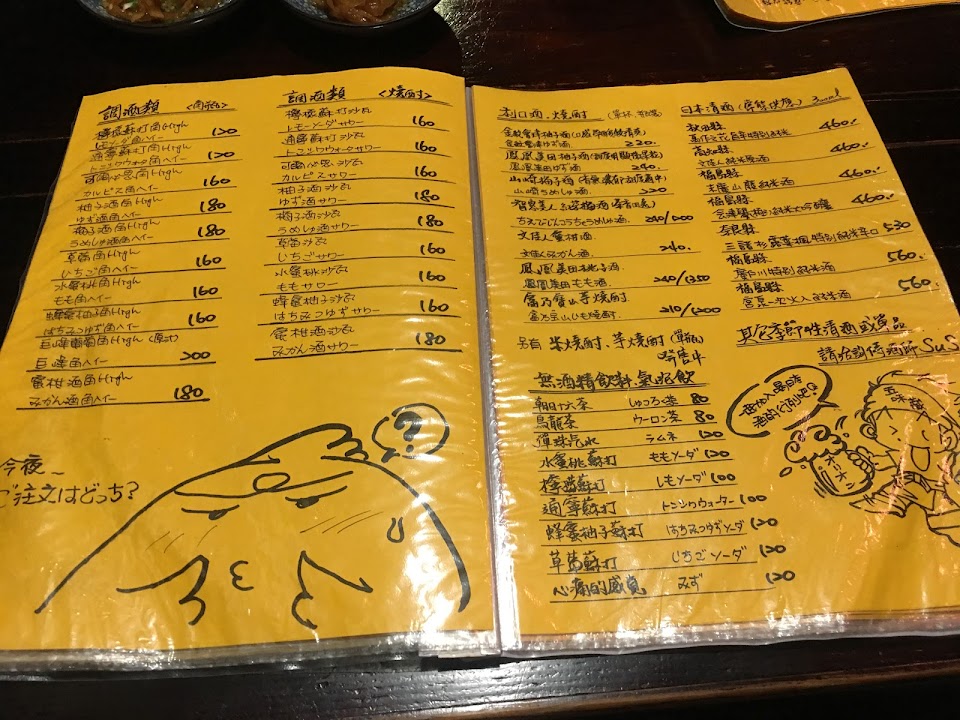 調酒類 <角瓶>
檸檬蘇打角High 120
レモンソーダ角ハイー
通寧蘇打角High 120
トンジックウォータ角ハイー
可爾必思角High 160
カルピス角ハイー
柚子酒角High 180
ゆず酒角ハイー
梅子酒角High 180
うめしゅ酒角ハイー
草莓角High 160
いちご角ハイー
水蜜桃角High 160
もも角ハイー
蜂蜜柚子角High 160
はちみつゆず角ハイー
巨峰葡萄角High (原汁)
巨峰角ハイー 200
蜜柑酒角High
みかん酒角ハイー 180
調酒類 <燒酎>
檸檬蘇打沙瓦 160
レモンソーダサワー
通寧蘇打沙瓦 160
トンジックウォータサワー
可爾必思沙瓦 160
カルピスサワー
柚子酒沙瓦 180
ゆず酒サワー
梅子酒沙瓦 180
うめしゅ酒サワー
草莓沙瓦 160
いちごサワー
水蜜桃沙瓦 160
ももサワー
蜂蜜柚子沙瓦 160
はちみつゆずサワー
蜜柑酒沙瓦
みかん酒サワー 180
今夜~
ご注文はどっち?
?
利口酒、燒酎
220.
鳳凰美田ゆず酒 240.
山崎うめしゅ酒 320
240/1200
文佳人蜜柑酒
文佳人みかん酒 240.
鳳凰美田桃子酒
鳳凰美田もも酒 240/1350
富乃寶山芋燒酎
富乃宝山いも焼酎 210/1200
另有 米燒酎、芋燒酎 (單杯)
販售中
無酒精飲料 氣泡飲
朝日十六茶 じゅうろく茶 80
烏龍茶 ウーロン茶 80
彈珠汽水 ラムネ 120
水蜜桃蘇打 ももソーダ 120
檸檬蘇打 レモソーダ 100
通寧蘇打 トンジックウォーター 100
蜂蜜柚子蘇打 はちみつゆずソーダ 120
草莓蘇打 いちごソーダ 120
心痛的感覺 みず 120
日本清酒
秋田縣 460/-
高知縣
文佳人純米酒 460/-
福島縣
460/-
福島縣
奈良縣
三諸杉 露葉風 特別純米辛口 530
福島縣
廣戶川特別純米酒 560.
福島縣
宮泉一火入純米酒 560.
其它季節性清酒或貨品
請洽詢侍酒師 SuS
五味鶴
オリオン